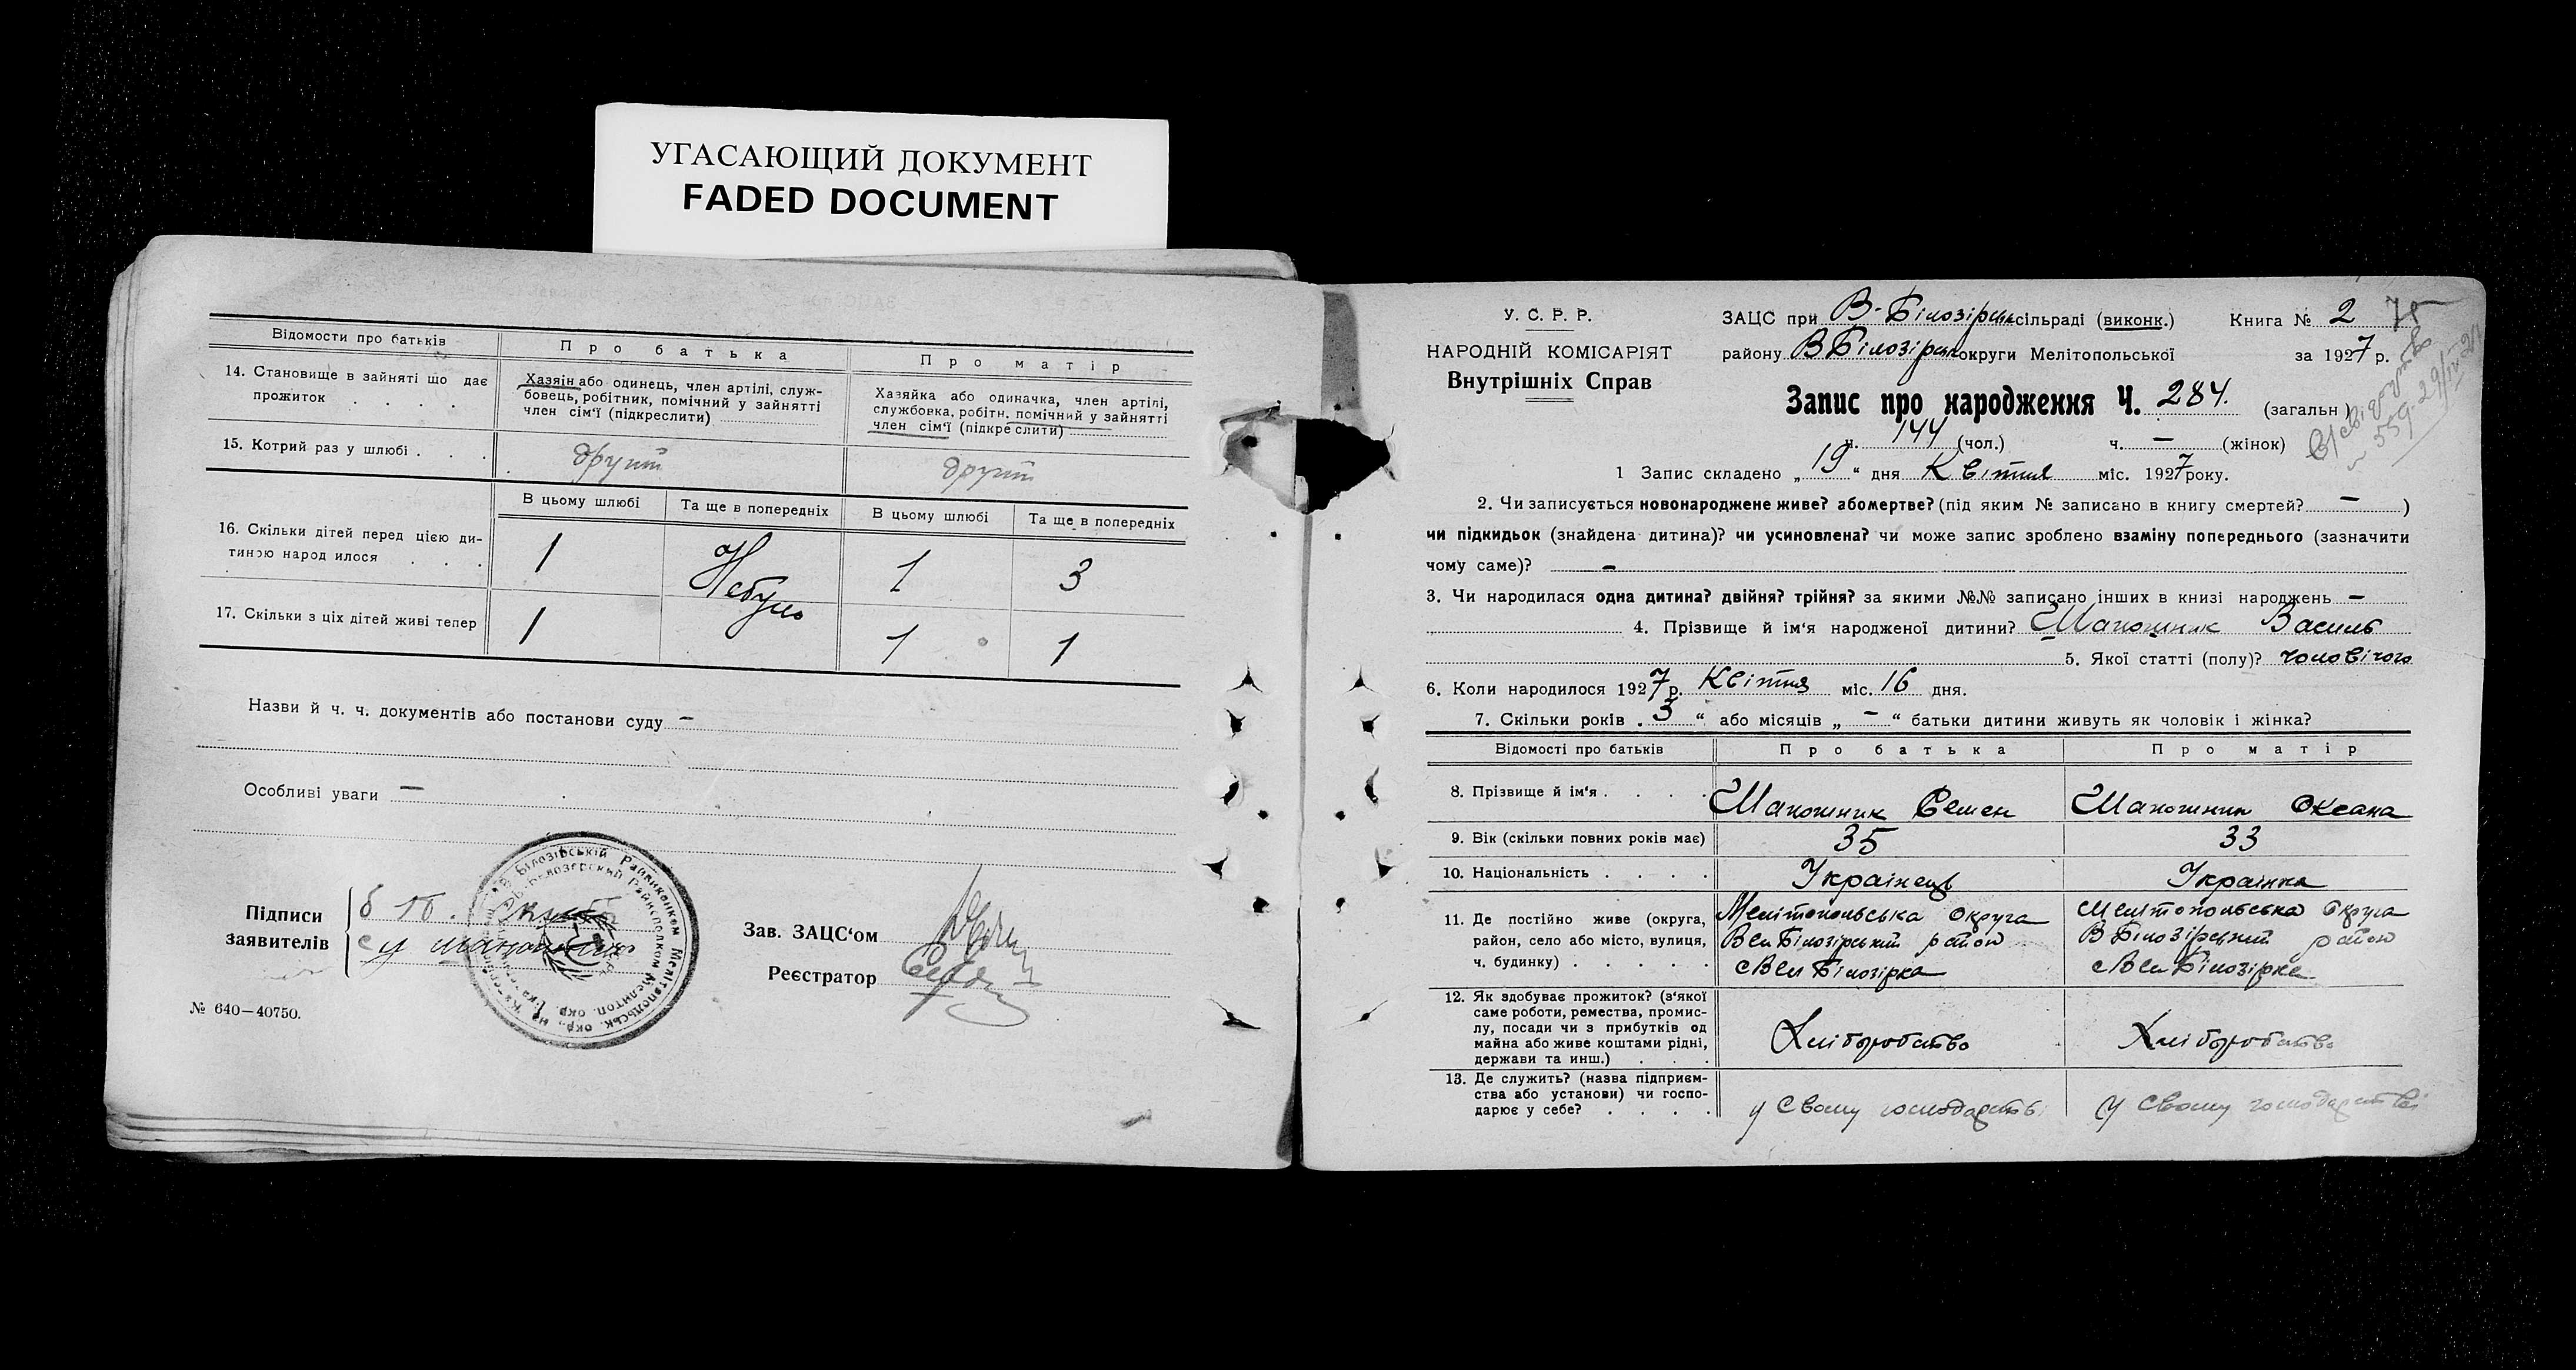 УГАСАЮЩИЙ ДОКУМЕНТ
FADED DOCUMENT
Відомости про батьків
Про батька
Про матір
14. Становище в зайняті що дає прожиток . . . .
Хазяін або одинець, член артілі, служ-
бовець, робітник, помічний у зайнятті
член сім‘ї (підкреслити)
Хазяйка або одиначка, член артілі,
службовка, робітн. помічний у зайнятті
член сім‘ї (підкреслити)
15. Котрий раз у шлюбі . . .
другий
другий
В цьому шлюбі
Та ще в попередніх
В цьому шлюбі
Та ще в попередніх
16. Скільки дітей перед цією ди-
тиною народ илося . . .
1
Небуло
1
3
17. Скільки з ціх дітей живі тепер
1
1
1
Назви й ч. ч. документів або постанови суду —
Особливі уваги —
Підписи
заявителів
Зав. ЗАЦС‘ом
Реєстратор
№ 640—40750.
У. С. Р. Р.
НАРОДНІЙ КОМІСАРІЯТ
Внутрішніх Справ
ЗАЦС при В-Білозірськ сільраді (виконк.)
Книга № 2
75
району ВБілозірськ округи Мелітопольської
за 1927 р.
Запис про народження Ч. 284. (загальн)
ч. 144 (чол.)
ч. — (жінок)
1 Запис складено „19“ дня Квітня міс. 1927 року.
2. Чи записується новонароджене живе? або мертве? (під яким № записано в книгу смертей? — )
чи підкидьок (знайдена дитина)? чи усиновлена? чи може запис зроблено взаміну попереднього (зазначити
чому саме)? —
3. Чи народилася одна дитина? двійня? трійня? за якими №№ записано інших в книзі народжень —
4. Прізвище й ім‘я народженої дитини? Шапошник Василь
5. Якої статті (полу)? чоловічого
6. Коли народилося 1927 р. Квітня міс. 16 дня.
7. Скільки років „3“ або місяців „—“ батьки дитини живуть як чоловік і жінка?
Відомості про батьків
Про батька
Про матір
8. Прізвище й ім‘я . . . .
Шапошник Семен
Шапошник Оксана
9. Вік (скільки повних років має)
35
33
10. Національність . . . .
Українець
Українка
11. Де постійно живе (округа,
район, село або місто, вулиця,
ч. будинку) . . . . .
Мелітопольська округа
Вел Білозірський район
с Вел Білозірка
Мелітопольська округа
В Білозірський район
с Вел Білозірка
12. Як здобуває прожиток? (з‘якої
саме роботи, ремества, промис-
лу, посади чи з прибутків од
майна або живе коштами рідні,
держави та инш.) . . .
Хліборобство
Хліборобство
13. Де служить? (назва підприєм-
ства або установи) чи госпо-
дарює у себе? . . . .
у свому господарстві
у свому господарстві